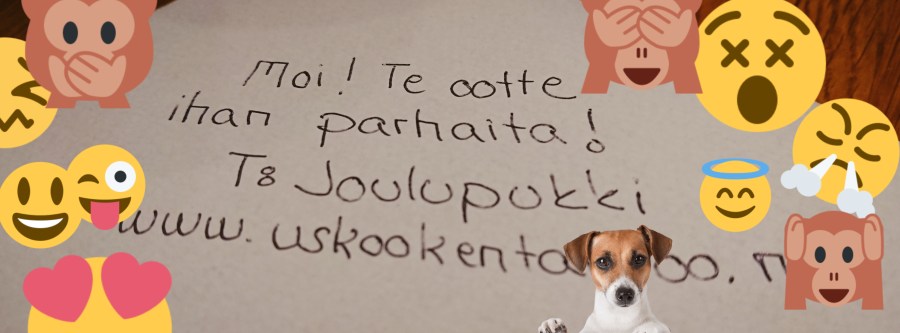 Moi! Te ootte
ihan parhaita!
T: Joulupukki
www.uskookenta